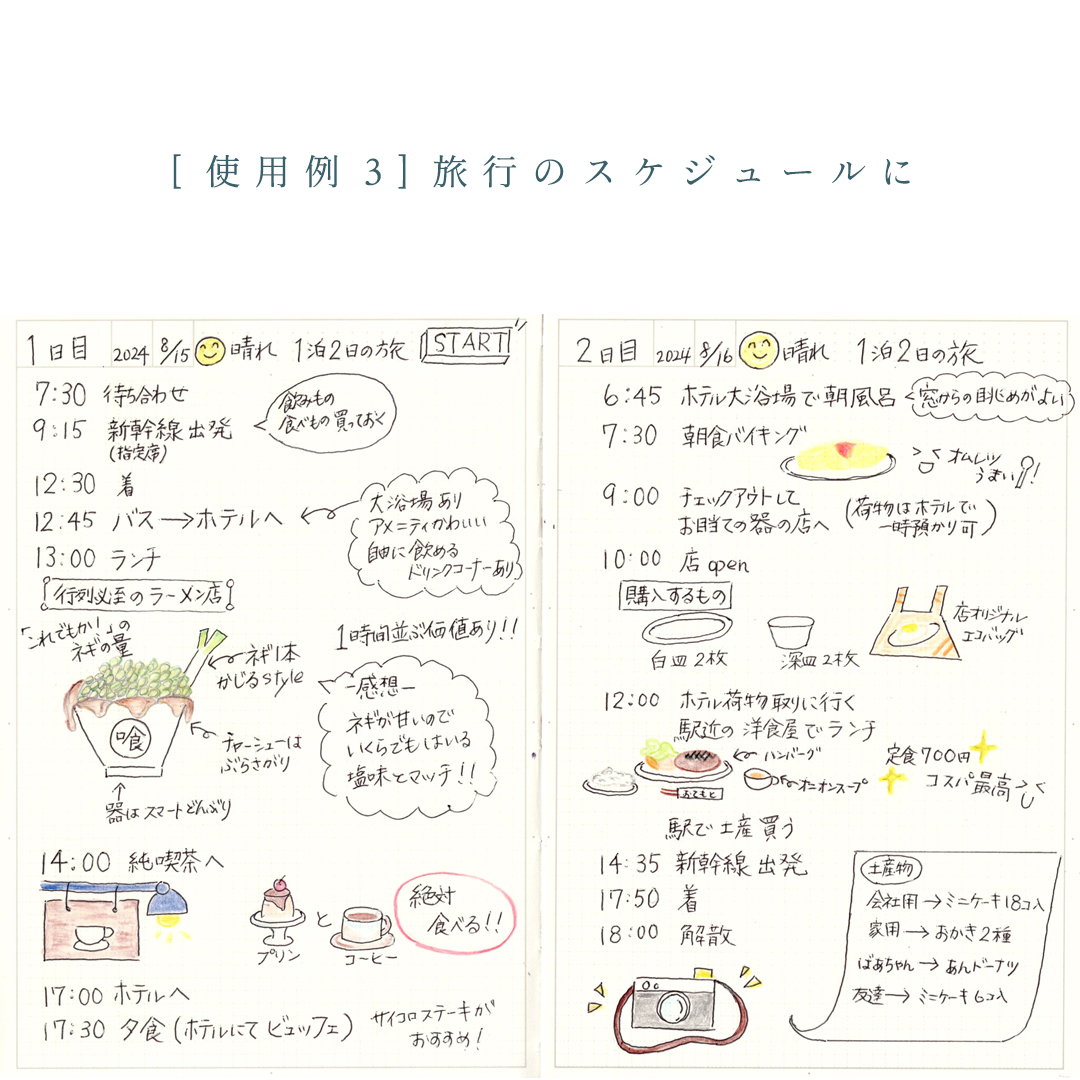 [使用例3]旅行のスケジュールに
1日目 2024 8/15 晴れ 1泊2日の旅 START
7:30 待ち合わせ
9:15 新幹線出発
(指定席)
飲みもの
食べもの買っておく
12:30 着
12:45 バス→ホテルへ
大浴場あり
アメニティかわいい
自由に飲める
ドリンクコーナーあり
13:00 ランチ
行列必至のラーメン店
「これでもか!」の
ネギの量
1時間並ぶ価値あり!!
ネギ1本
かじるstyle
喰
チャーシューは
ぶらさがり
↑
器はスマートどんぶり
ー感想ー
ネギが甘いので
いくらでもはいる
塩味とマッチ!!
14:00 純喫茶へ
プリン
と
コーヒー
絶対
食べる!!
17:00 ホテルへ
17:30 夕食(ホテルにてビュッフェ)
サイコロステーキが
おすすめ!
2日目 2024 8/16 晴れ 1泊2日の旅
6:45 ホテル大浴場で朝風呂
窓からの眺めがよい
7:30 朝食バイキング
オムレツ
うまい!
9:00 チェックアウトして
お目当ての器の店へ
(荷物はホテルで
一時預かり可)
10:00 店open
購入するもの
白皿2枚
深皿2枚
店オリジナル
エコバッグ
12:00 ホテル荷物取りに行く
駅近の洋食屋でランチ
ハンバーグ
オニオンスープ
おてもと
定食700円
コスパ最高
駅で土産買う
14:35 新幹線出発
17:50 着
18:00 解散
土産物
会社用→ミニケーキ18コ入
家用→おかき2種
ばあちゃん→あんドーナツ
友達→ミニケーキ6コ入